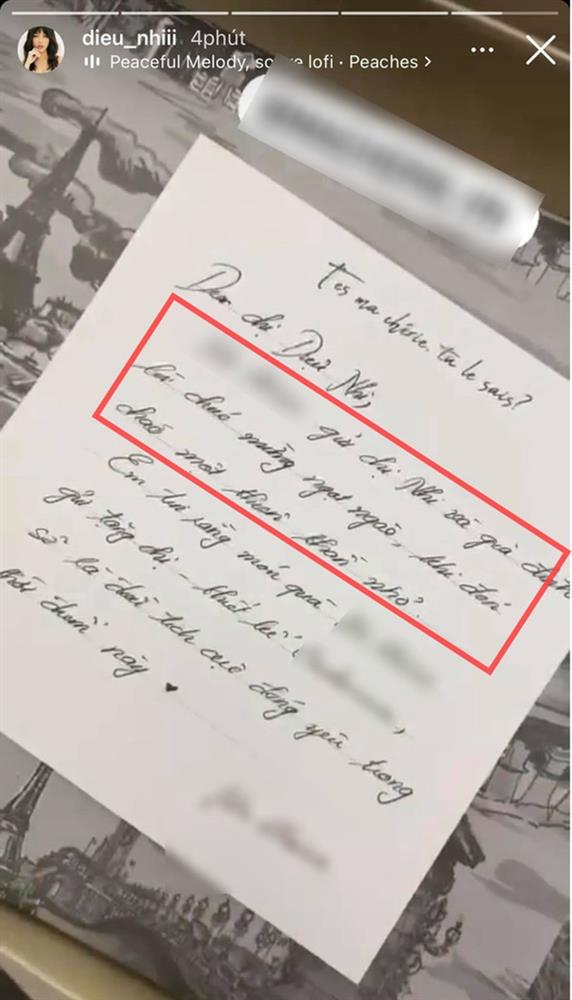 dieu_nhiii 4phút
Peaceful Melody, so e lofi · Peaches >
T'es ma chérie. tu le sais?
Dear chị Diệu Nhi,
gửi chị Nhi và gia đình
lời chúc mừng ngọt ngào, khi đón
chào một thiên thần nhỏ.
Em tin rằng món quà
gửi tặng chị - thiết kế
sẽ là chú tịch cực đáng yêu trong
thời điểm này ♥